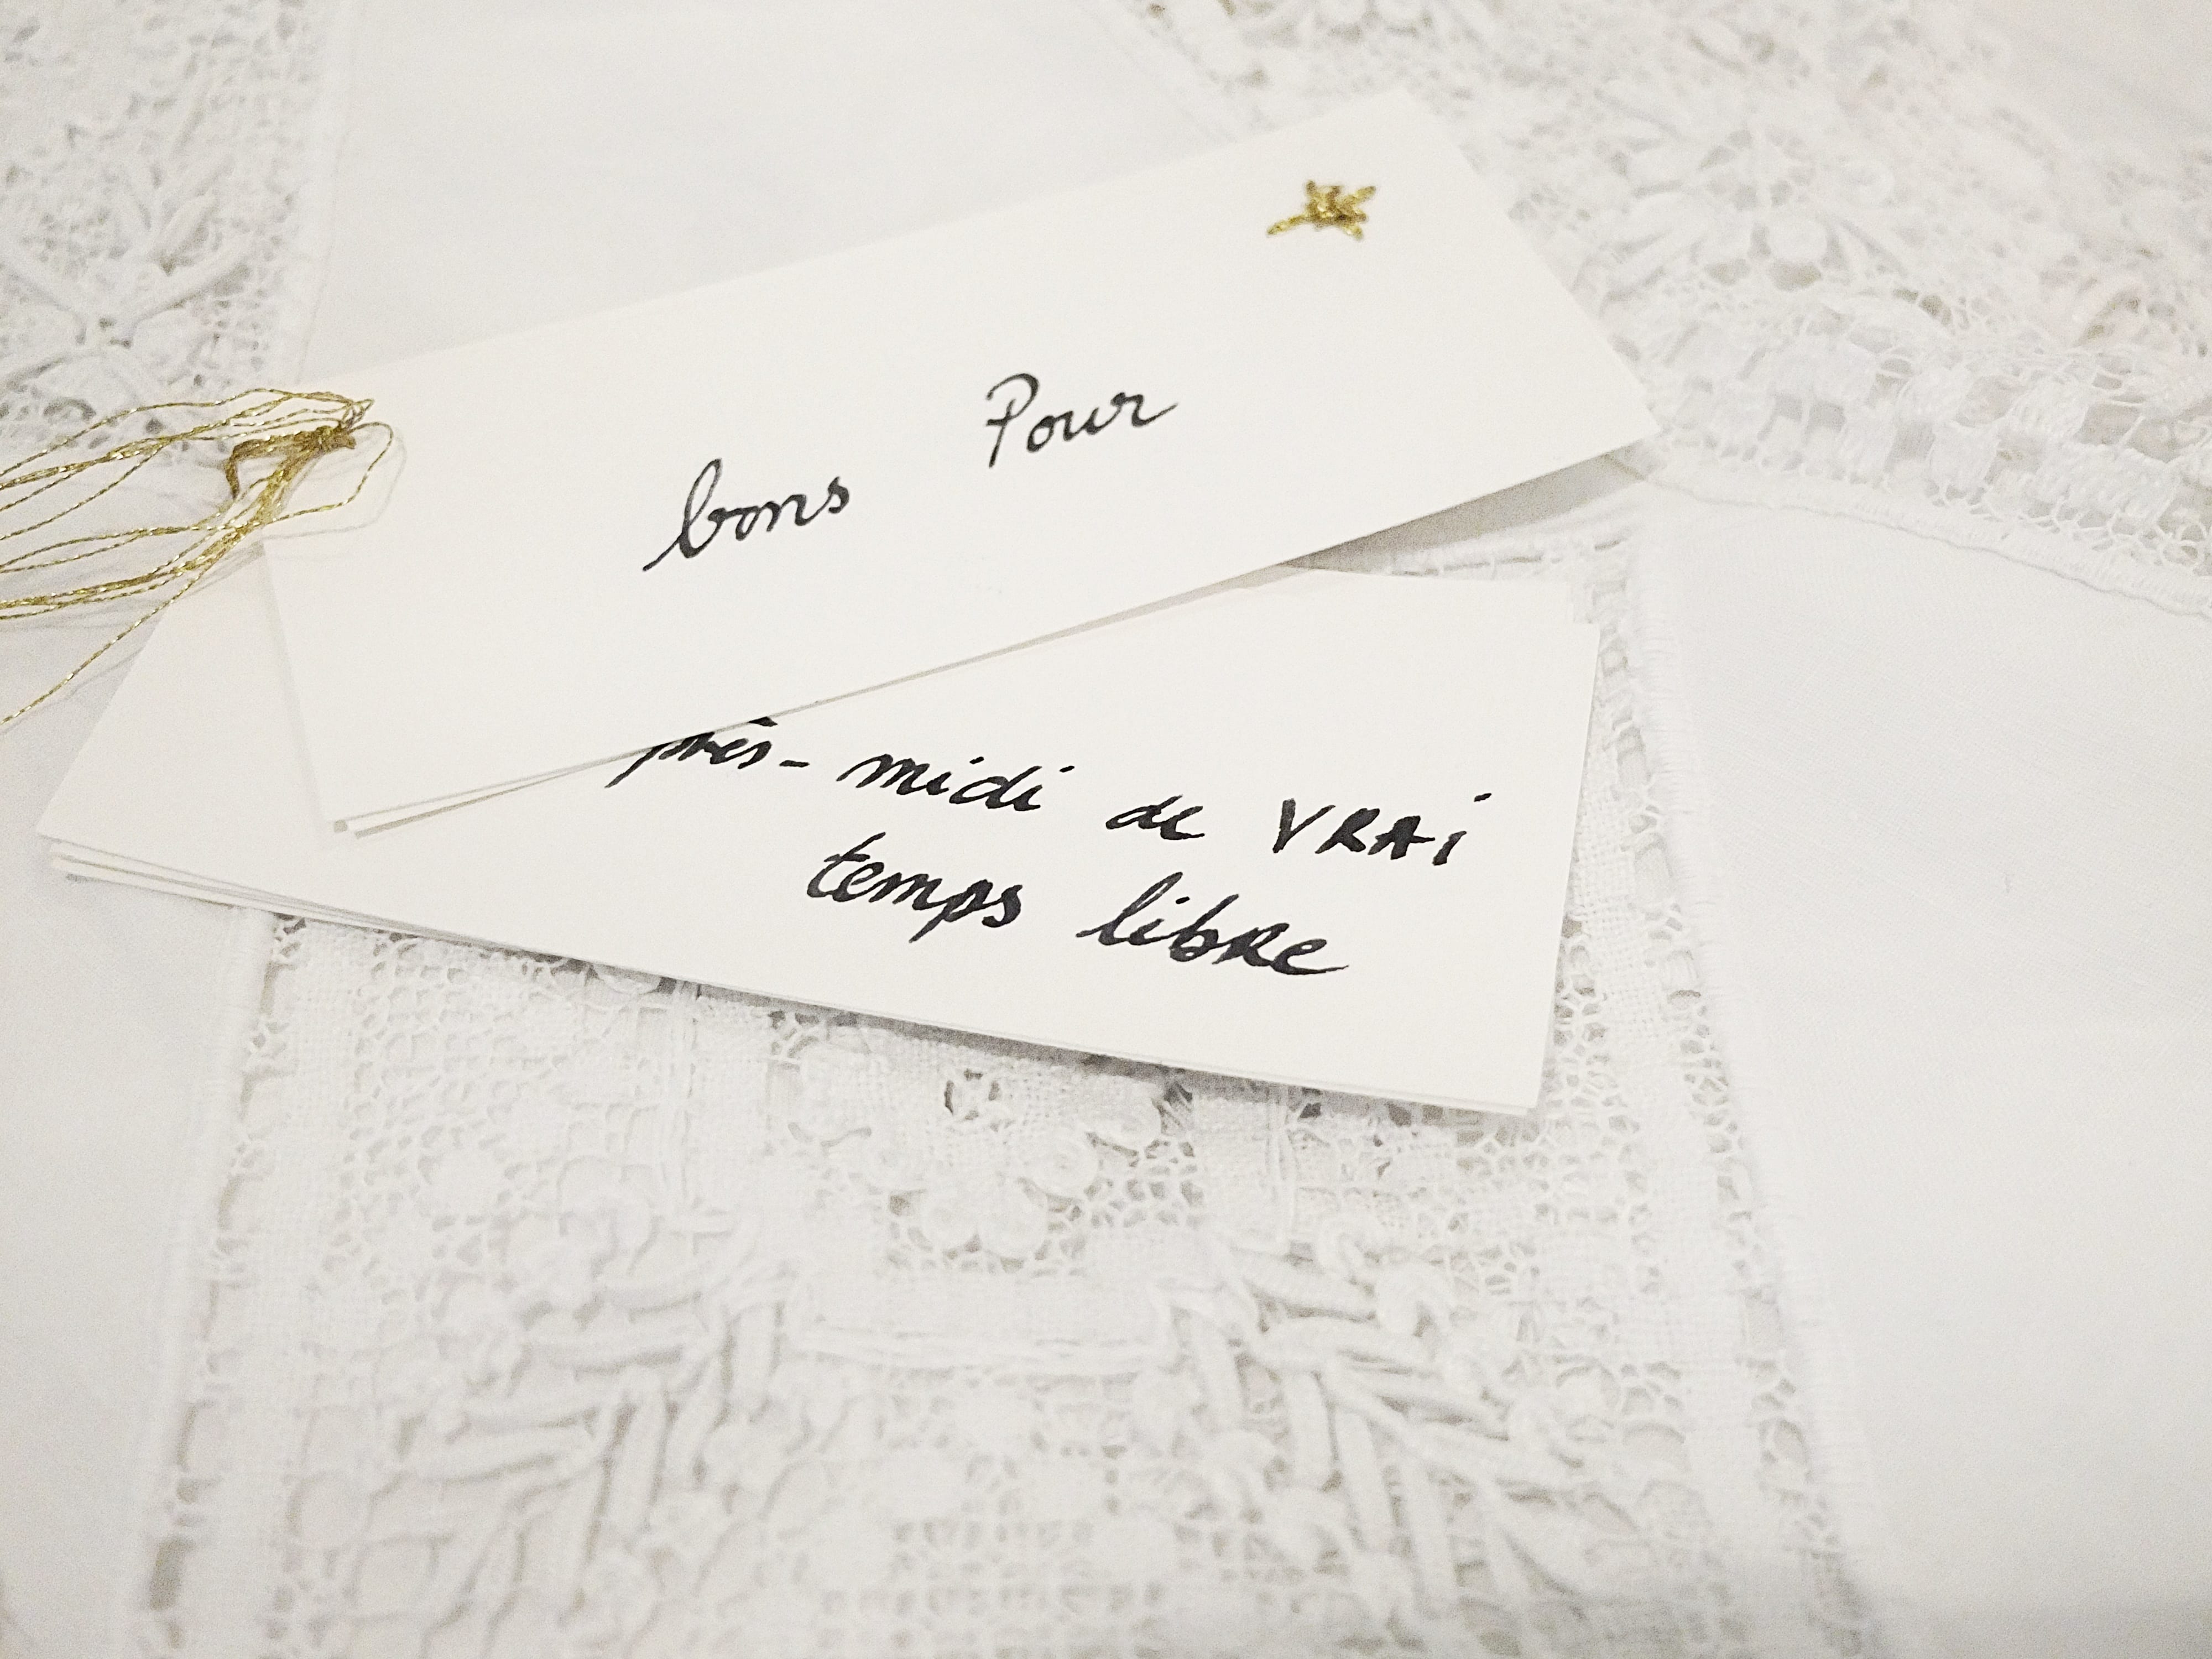 bons Pour
près-midi de VRAi
temps libRe